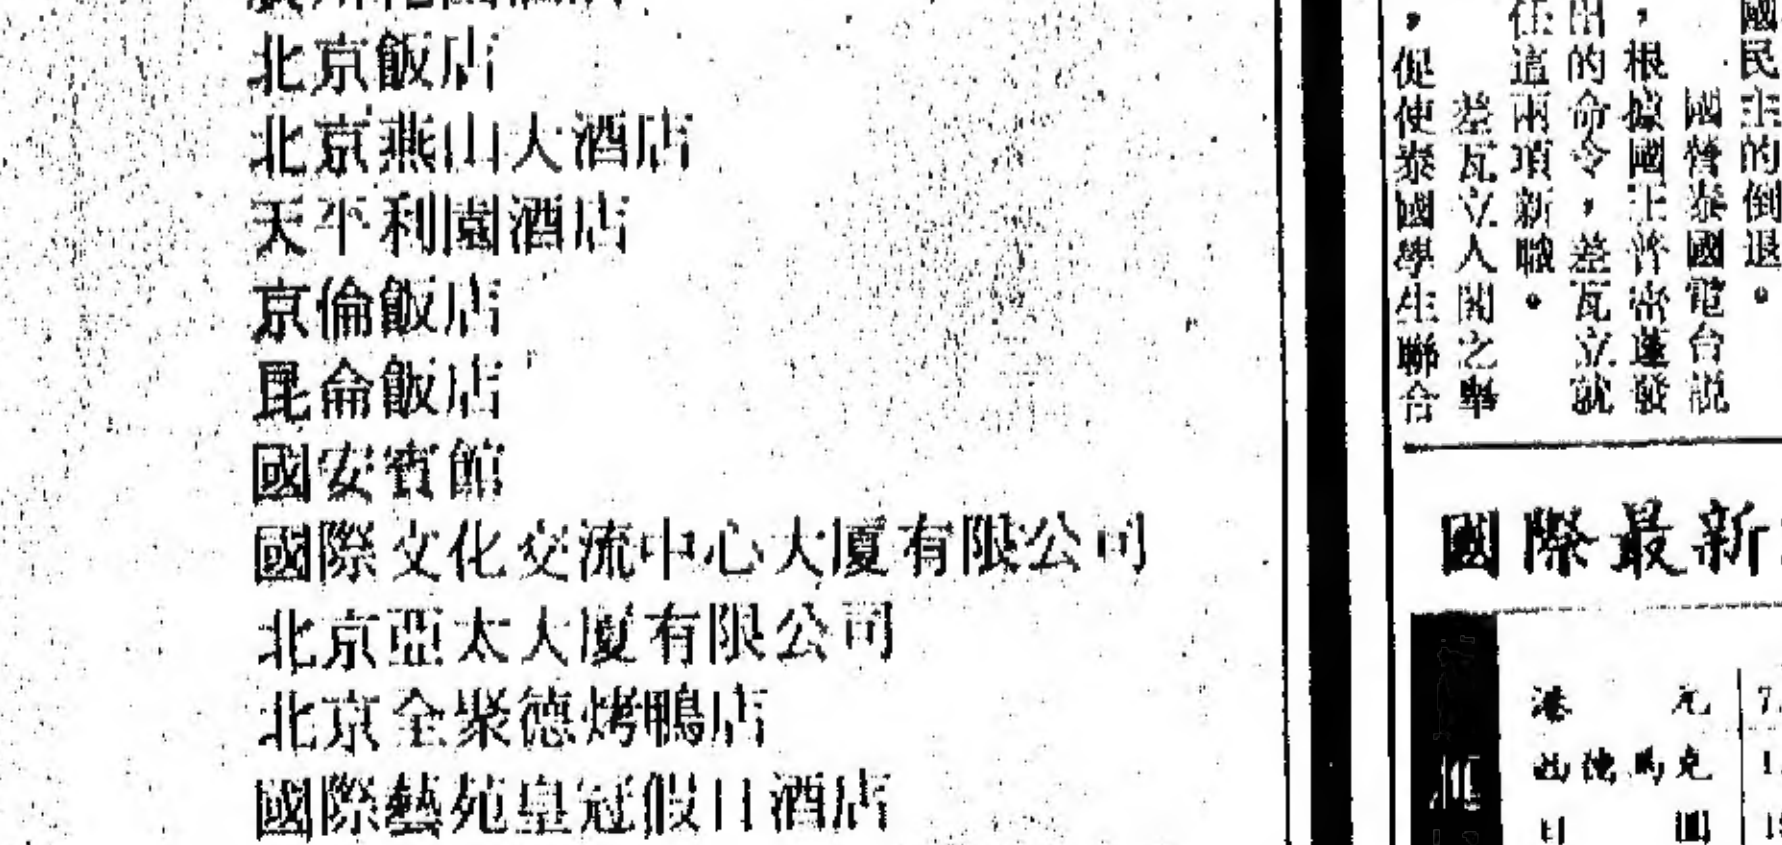 北京飯店
北京燕山大酒店
天平利園酒店
京倫飯店
昆侖飯店
國安賓館
國際文化交流中心大廈有限公司
北京亞太大廈有限公司
北京全聚德烤鴨店
國際藝苑皇冠假日酒店
國民主的倒退。
國營泰國電台説
，根據國王普密蓬發
出的命令，差瓦立就
任這兩項新職。
差瓦立入閣之舉
，促使泰國學生聯合
國際最新
港元 7.
西德馬克 1.
日圓